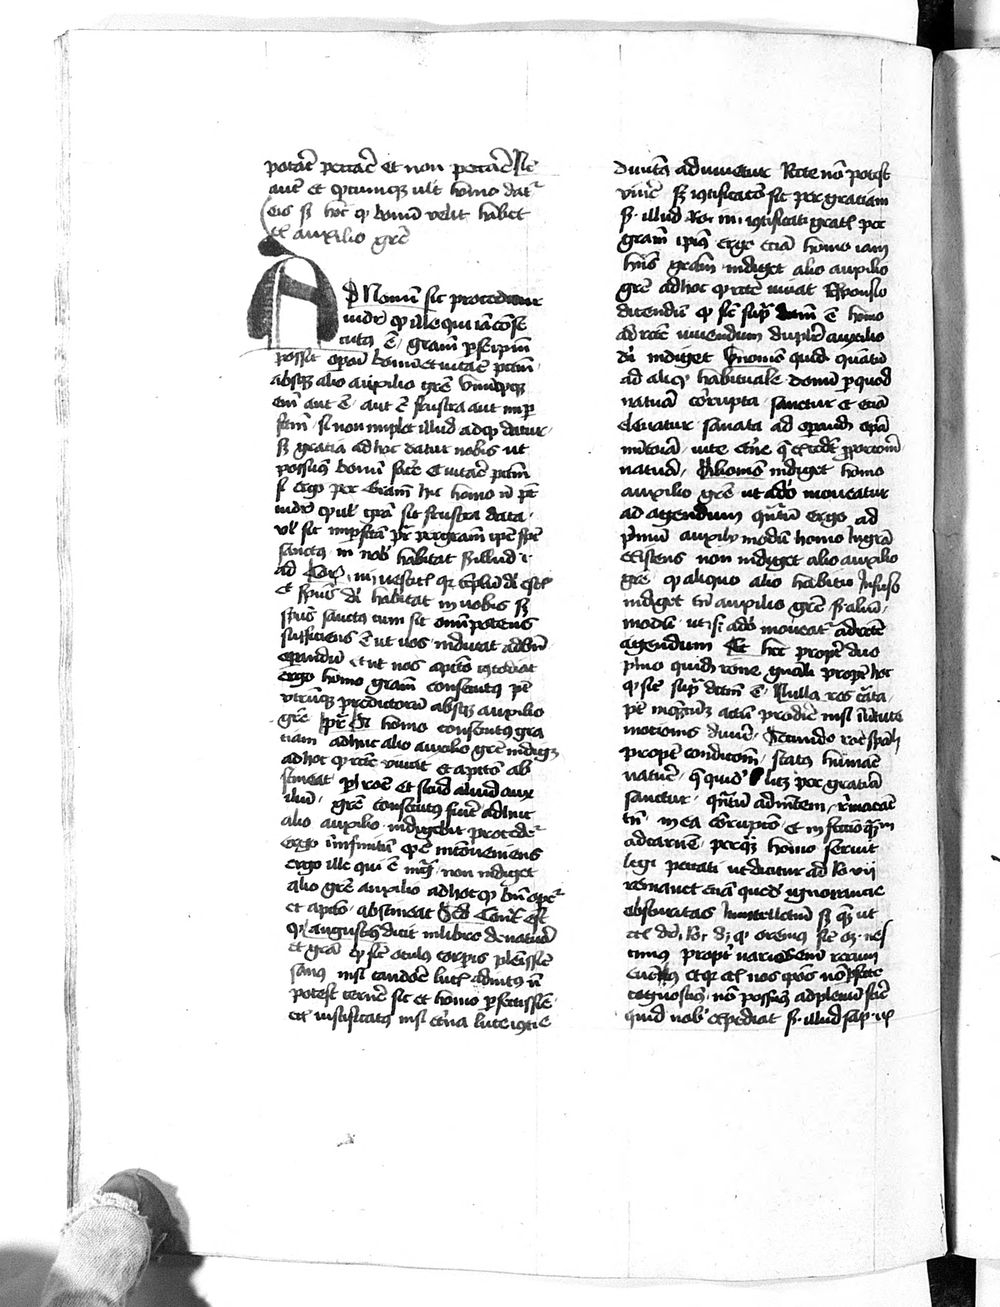 potest peccare et non peccare Sic
autem et quicumque vult homo datur
eis sed hoc quod bonum velit habet
ex auxilio gratie
Ad Nonum sic proceditur
videtur quod ille qui iam conse
cutus est gratiam per seipsum
possit operari bonum et vitare peccatum
absque alio auxilio gratie Unumquodque
enim aut est aut est frustra aut imper
fectum si non implet illud ad quod datur
sed gratia ad hoc datur nobis ut
possimus bonum facere et vitare peccatum
si ergo per gratiam hic homo non potest
videtur quod vel gratia sit frustra data
vel sit imperfecta preterea per gratiam ipse spiritus
sanctus in nobis habitat secundum illud
ad Cor iii nescitis quia templum dei estis
et spiritus dei habitat in vobis sed
spiritus sanctus cum sit omnipotens
sufficiens est ut nos inducat ad bonum
operandum et ut nos a peccato custodiat
ergo homo gratiam consecutus potest
utrumque predictorum absque auxilio
gratie preterea Si homo consecutus gra
tiam adhuc alio auxilio gratie indiget
ad hoc quod recte vivat et a peccato ab
stineat pari ratione et si illud aliud aux
ilium gratie consecutus fuerit adhuc
alio auxilio indigebit procedetur
ergo in infinitum quod est inconveniens
ergo ille qui est in gratia non indiget
alio gratie auxilio ad hoc quod bene operetur
et a peccato abstineat Sed Contra est
quod augustinus dicit in libro de natura
et gratia quod sicut oculus corporis plenissime
sanus nisi candore lucis adiutus non
potest cernere sic et homo perfectissime
etiam iustificatus nisi eterna luce iusticie
divinitus adiuvetur Recte non potest
vivere sed iustificatio fit per gratiam
secundum illud Ro iii iustificati gratis per
gratiam ipsius ergo etiam homo iam
habens gratiam indiget alio auxilio
gratie ad hoc quod recte vivat Responsio
dicendum quod sicut supra dictum est homo
ad recte vivendum dupliciter auxilio
dei indiget Primo quidem quantum
ad aliquod habituale donum per quod
natura corrupta sanetur et etiam
elevetur sanata ad operandum opera
meritoria vite eterne que excedunt proportionem
nature Alio modo indiget homo
auxilio gratie ut a deo moveatur
ad agendum quantum ergo ad
primum auxilii modum homo in gratia
existens non indiget alio auxilio
gratie quasi aliquo alio habitu infuso
indiget tamen auxilio gratie secundum alium
modum ut scilicet a deo moveatur ad recte
agendum Et hoc propter duo
primo quidem ratione generali propter hoc
quod sicut supra dictum est Nulla res creata
potest in quemcumque actum prodire nisi virtute
motionis divine Secundo ratione speciali
propter conditionem status humane
nature que quidem licet per gratiam
sanetur quantum ad mentem remanet
tamen in ea corruptio et infectio quantum
ad carnem per quam homo servit
legi peccati ut dicitur ad Ro vii
remanet etiam quedam ignorantie
obscuritas in intellectu secundum quam ut
etiam dicitur Ro 8 quid oremus sicut oportet nes
cimus propter varios enim rerum
eventus et quia etiam nos ipsos non perfecte
cognoscimus non possumus ad plenum scire
quid nobis expediat secundum illud sap ix